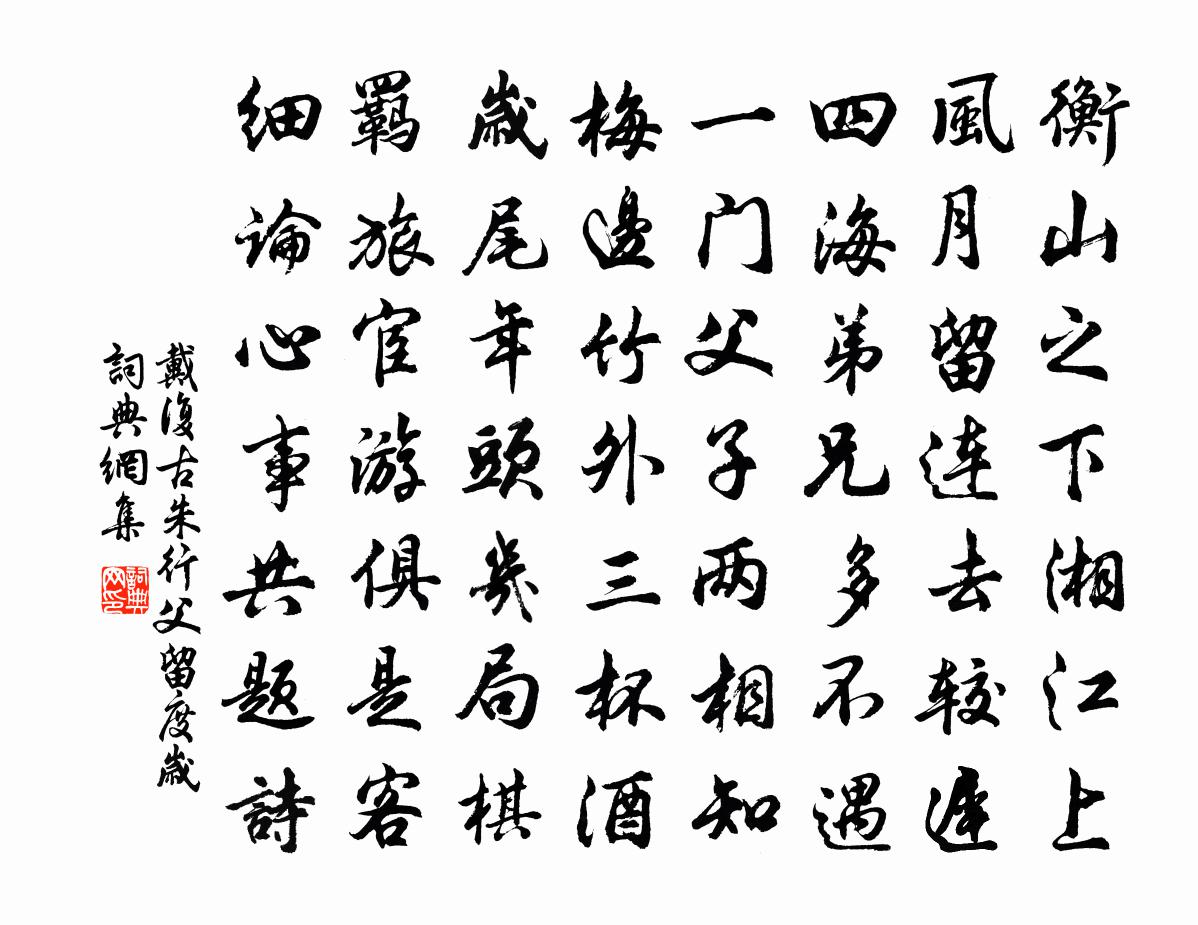 衡山之下湘江上
風月留连去较遲
四海弟兄多不遇
一门父子两相知
梅邊竹外三杯酒
歲尾年頭幾局棋
羁旅宦游俱是客
细論心事共题詩
戴復古朱行父留度歲
詞典網集
詞典网印